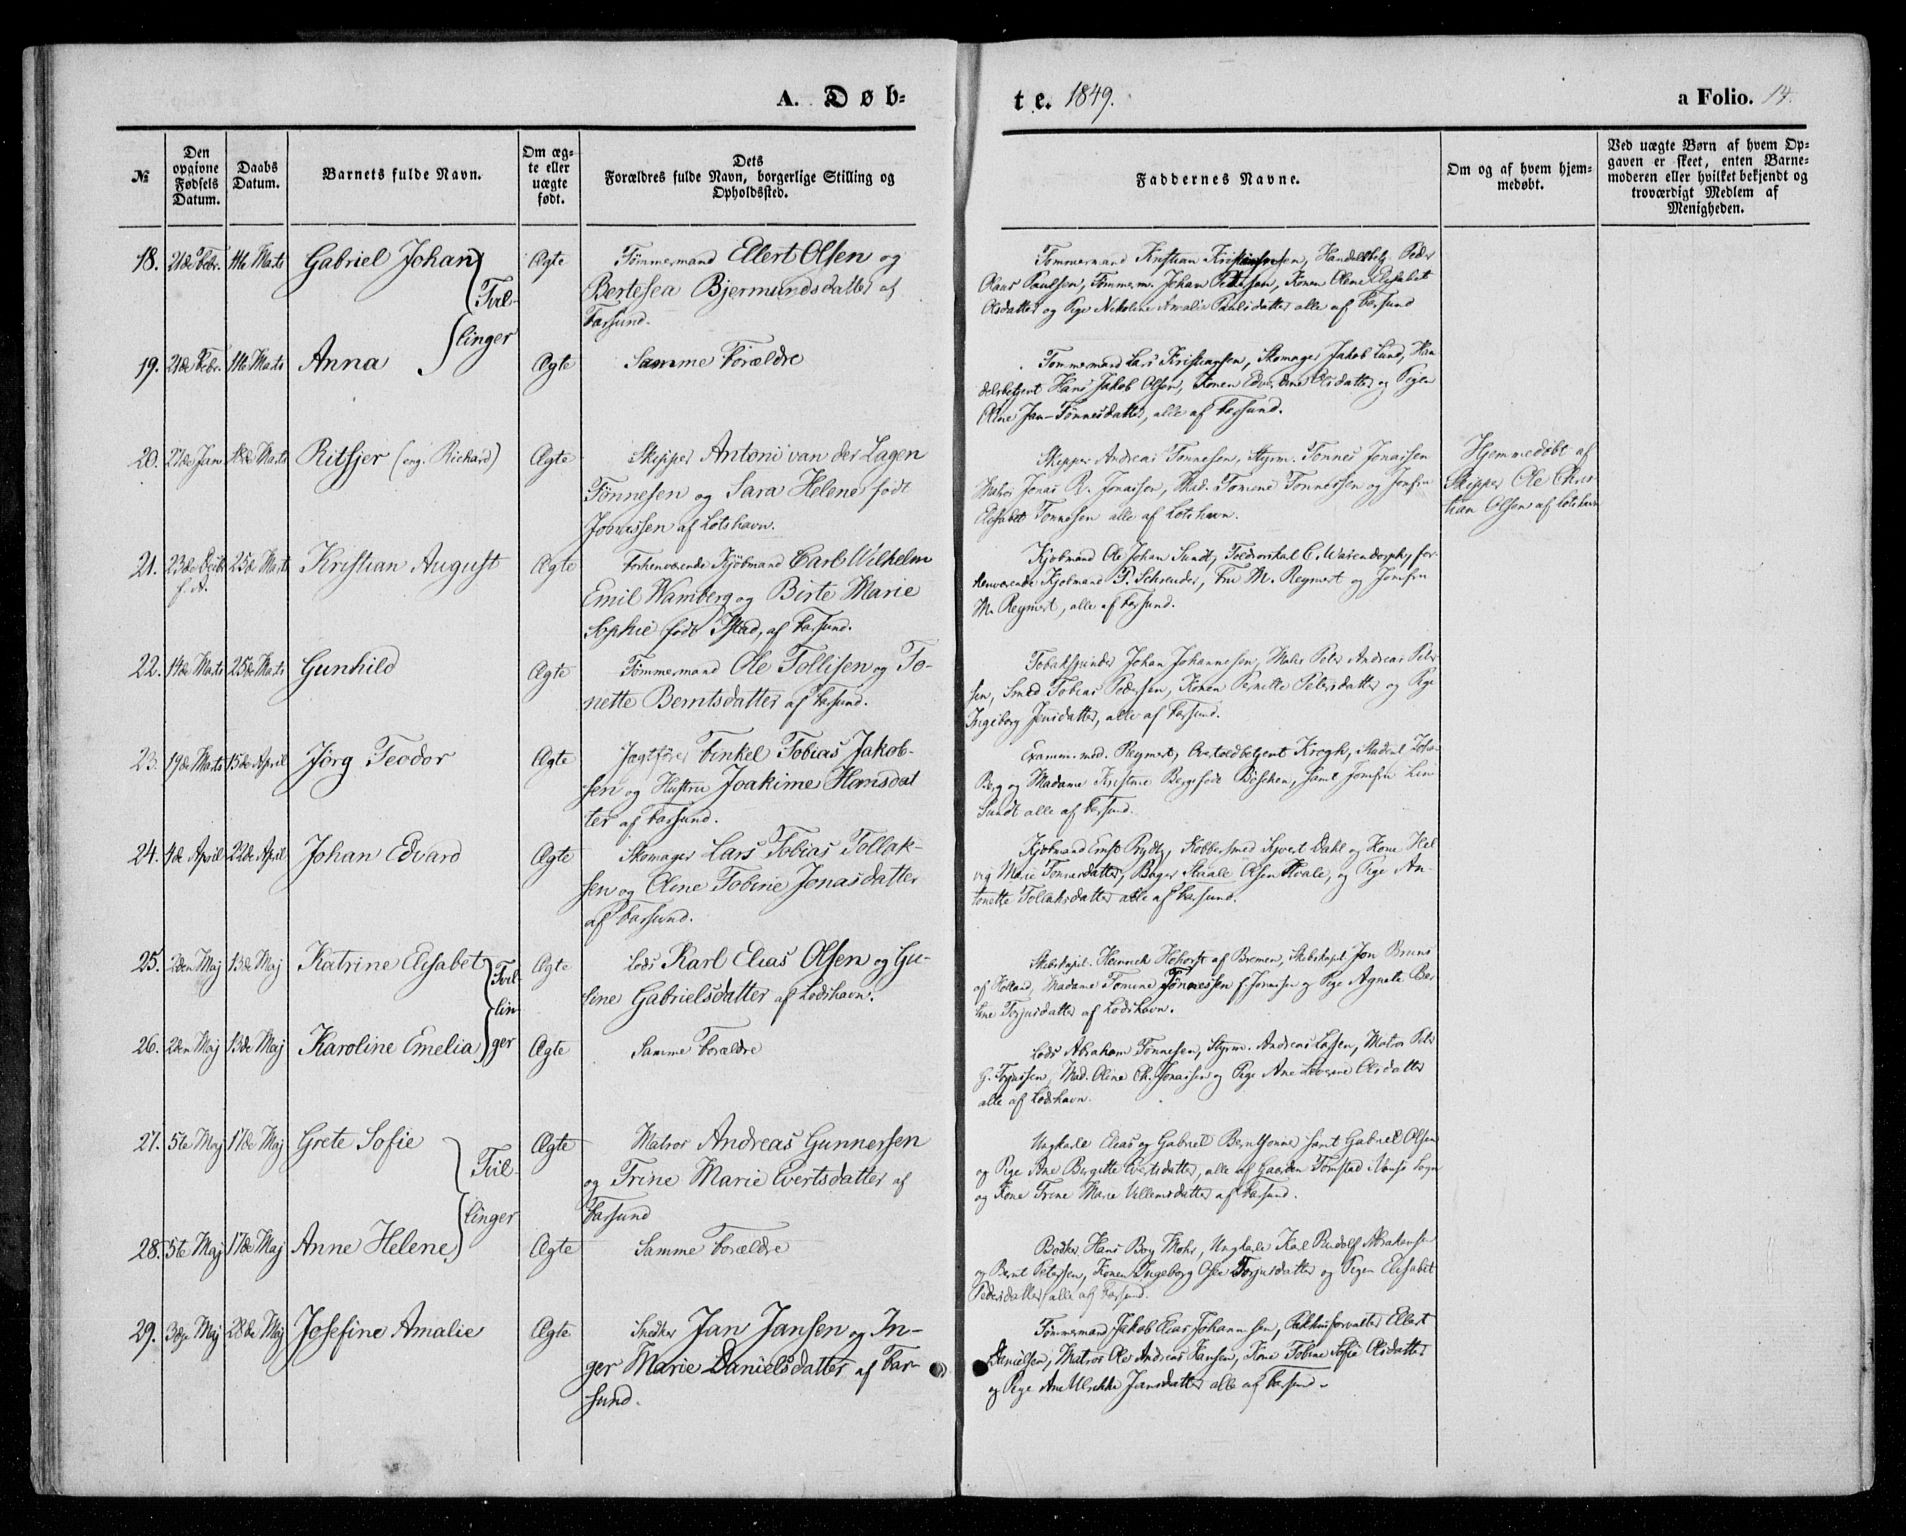 A. Døb=
te. 1849.
a Folio. 14.
№
Den opgivne Fødsels Datum.
Daabs Datum.
Barnets fulde Navn.
Om ægte eller uægte født.
Dets Forældres fulde Navn, borgerlige Stilling og Opholdssted.
Faddernes Navne.
Om og af hvem hjemmedøbt.
Ved uægte Børn af hvem Opgaven er skeet, enten Barnemoderen eller hvilket bekjendt og troværdigt Medlem af Menigheden.
18. 21de Febr. 11te Marts Gabriel Johan Ægte Tømmermand Ellert Olsen og
Bertesea Bjermundsdatter af
Farsund.
Tvil-
linger
Tømmermand Kristian Kristiansen, Handelsbetj. Peder
Claus Paulsen, Tømmerm. Johan Pettersen, Konen Olene Elisabet
Olsdatter og Pige Nikoline Amalie Paulsdatter alle af Farsund
19. 21de Febr. 11te Marts Anna Ægte Samme Forældre
Tømmermand Lars Kristiansen, Skomager Jakob Lund, Han-
delsbetjent Hans Jakob Olsen, Konen Edvardine Olsdatter og Pigen
Oline Jan-Tønnesdatter, alle af Farsund.
20. 27de Jan 18de Marts Ritsjer (eng. Richard) Ægte Skipper Antoni van der Lagen
Tönnesen og Sara Helene født
Jonassen af Lotshavn.
Skipper Andreas Tønnesen, Styrm. Tønnes Jonassen
Matros Jonas R. Jonassen, Mad. Tomine Tønnessen og Jomfru
Elisabet Tønnesen alle af Lotshavn.
Hjemmedøbt af
Skipper Ole Chris-
tian Olsen af Lotshavn
21. 23de Decbr f. A. 25de Marts Kristian August Ægte Forhenværende Kjöbmand Carl Wilhelm
Emil Wamberg og Birte Marie
Sophie født Ystad, af Farsund.
Kjøbmand Ole Johan Sundt, Toldvorskal C. Warendorph, for-
henværende Kjøbmand P. Schreuder, Fru M. Regnert og Jomfru
M. Regnert, alle af Farsund.
22. 14de Marts 25de Marts Gunhild Ægte Tømmermand Ole Tollisen og To-
nette Berntsdatter af Farsund.
Tobakspinder Johan Johannesen, Maler Peter Andreas Peter-
sen, Smed Tobias Pedersen, Konen Pernille Petersdatter og Pige
Ingeborg Jensdatter, alle af Farsund.
23. 19de Marts 15de April Jørg Teodor Ægte Jagtfører Finkel Tobias Jakob-
sen og Hustru Joakime Hansdat
ter af Farsund.
Examin. med. Regnert, Overtoldbetjent Krogh, Student Joha
Berg og Madame Kristine Berg født Böschen, samt Jomfru Lin
Sundt alle af Farsund.
24. 4de April 22de April Johan Edvard Ægte Skomager Lars Tobias Tollak-
sen og Oline Tobine Jonasdatter
af Farsund.
Kjøbmand Ernst Rydby, Kobbersmed Sjvert Dahl og Kone Hel-
vig Marie Tønnesdatter, Bager Staale Olsen Kvale, og Pige An-
tonette Tollaksdatter alle af Farsund.
25. 2den Maj 13de Maj Katrine Elisabet Ægte Lods Karl Elias Olsen og Gu-
sine Gabrielsdatter af Lodshavn.
Tvil-
lin-
ger
Skibskapit. Heinrich Hohorst af Bremen, Skibskapit Jon Bruns
af Holland, Madame Tomine Tønnessen f. Jonassen og Pige Agnete Ber-
tine Torjusdatter af Lodshavn.
26. 2den Maj 13de Maj Karoline Emelia Ægte Samme Forældre
Lods Abraham Tønnesen, Styrm. Andreas Lassen, Matros Peter
G. Torjussen, Mad. Oline Ch. Jonassen og Pige Ane Severine Olsdatter
alle af Lodshavn.
27. 5te Maj 17de Maj Grete Sofie Ægte Matros Andreas Gunnersen
og Trine Marie Evertsdatter af
Farsund
Tvil-
linger
Ungkarle Elias og Gabriel Berntsønner samt Gabriel Olsen
og Pige Ane Birgitte Evertsdatter, alle af Gaarden Tomstad i Vanse Sogn
og Kone Trine Marie Villumsdatter af Farsund.
28. 5te Maj 17de Maj Anne Helene Ægte Samme Forældre
Bødker Hans Boy Mohr, Ungkarle Karl Rudolf Abrahamsen
og Bernt Peterssen, Konen Ingeborg Olse Torjusdatter og Pigen Elisabet
Pedersdatter, alle af Farsund.
29. 3die Maj 28de Maj Josefine Amalie Ægte Snedker Jan Jansen og In-
ger Marie Danielsdatter af Far-
sund.
Tømmermand Jakob Elias Johannesen, Pakhusforvalter Ellert
Danielsen, Matros Ole Andreas Hansen, Kone Tobine Sofie Olsdatter
og Pige Ane Ulrikke Jansdatter alle af Farsund.